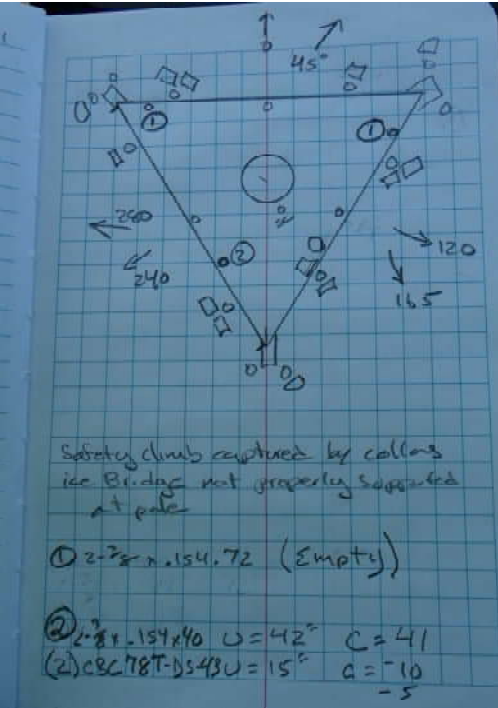 45°
①
①
280
240
②
120
165
Safety climb captured by collar
ice Bridge not properly supported
at pole
① 2-⅞ x .154.72 (Empty)
② 2-⅜ x .154x40 U=42" C=41
(2) CBC78T-DS43 U=15" C=-10
-5